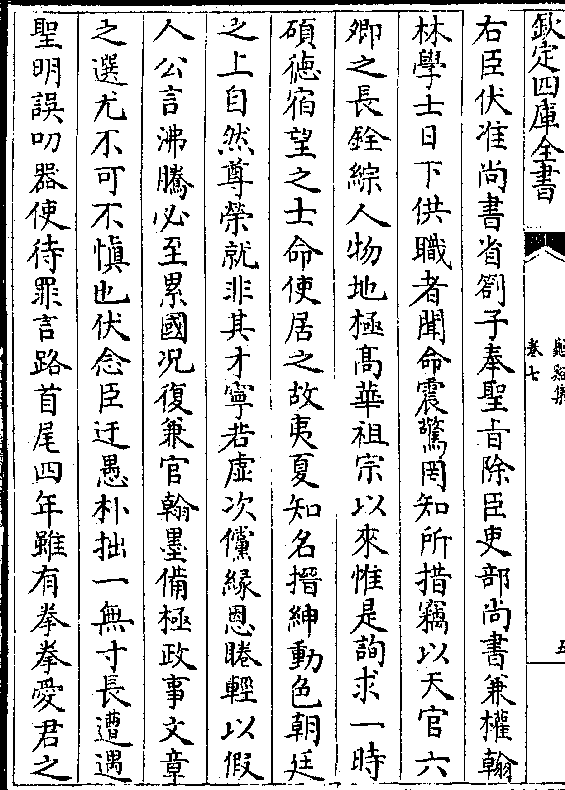 欽定四庫全書
卷七
右臣伏准尚書省劄子奉聖旨除臣吏部尚書兼權翰
林學士日下供職者聞命震驚罔知所措竊以天官六
卿之長銓綜人物地極高華祖宗以來惟是詢求一時
碩徳宿望之士命使居之故夷夏知名搢紳動色朝廷
之上自然尊榮就非其才寧若虛次儻緣恩睠輕以假
人公言沸騰必至累國况復兼官翰墨備極政事文章
之選尤不可不慎也伏念臣迂愚朴拙一無寸長遭遇
聖明誤叨器使待罪言路首尾四年雖有拳拳愛君之